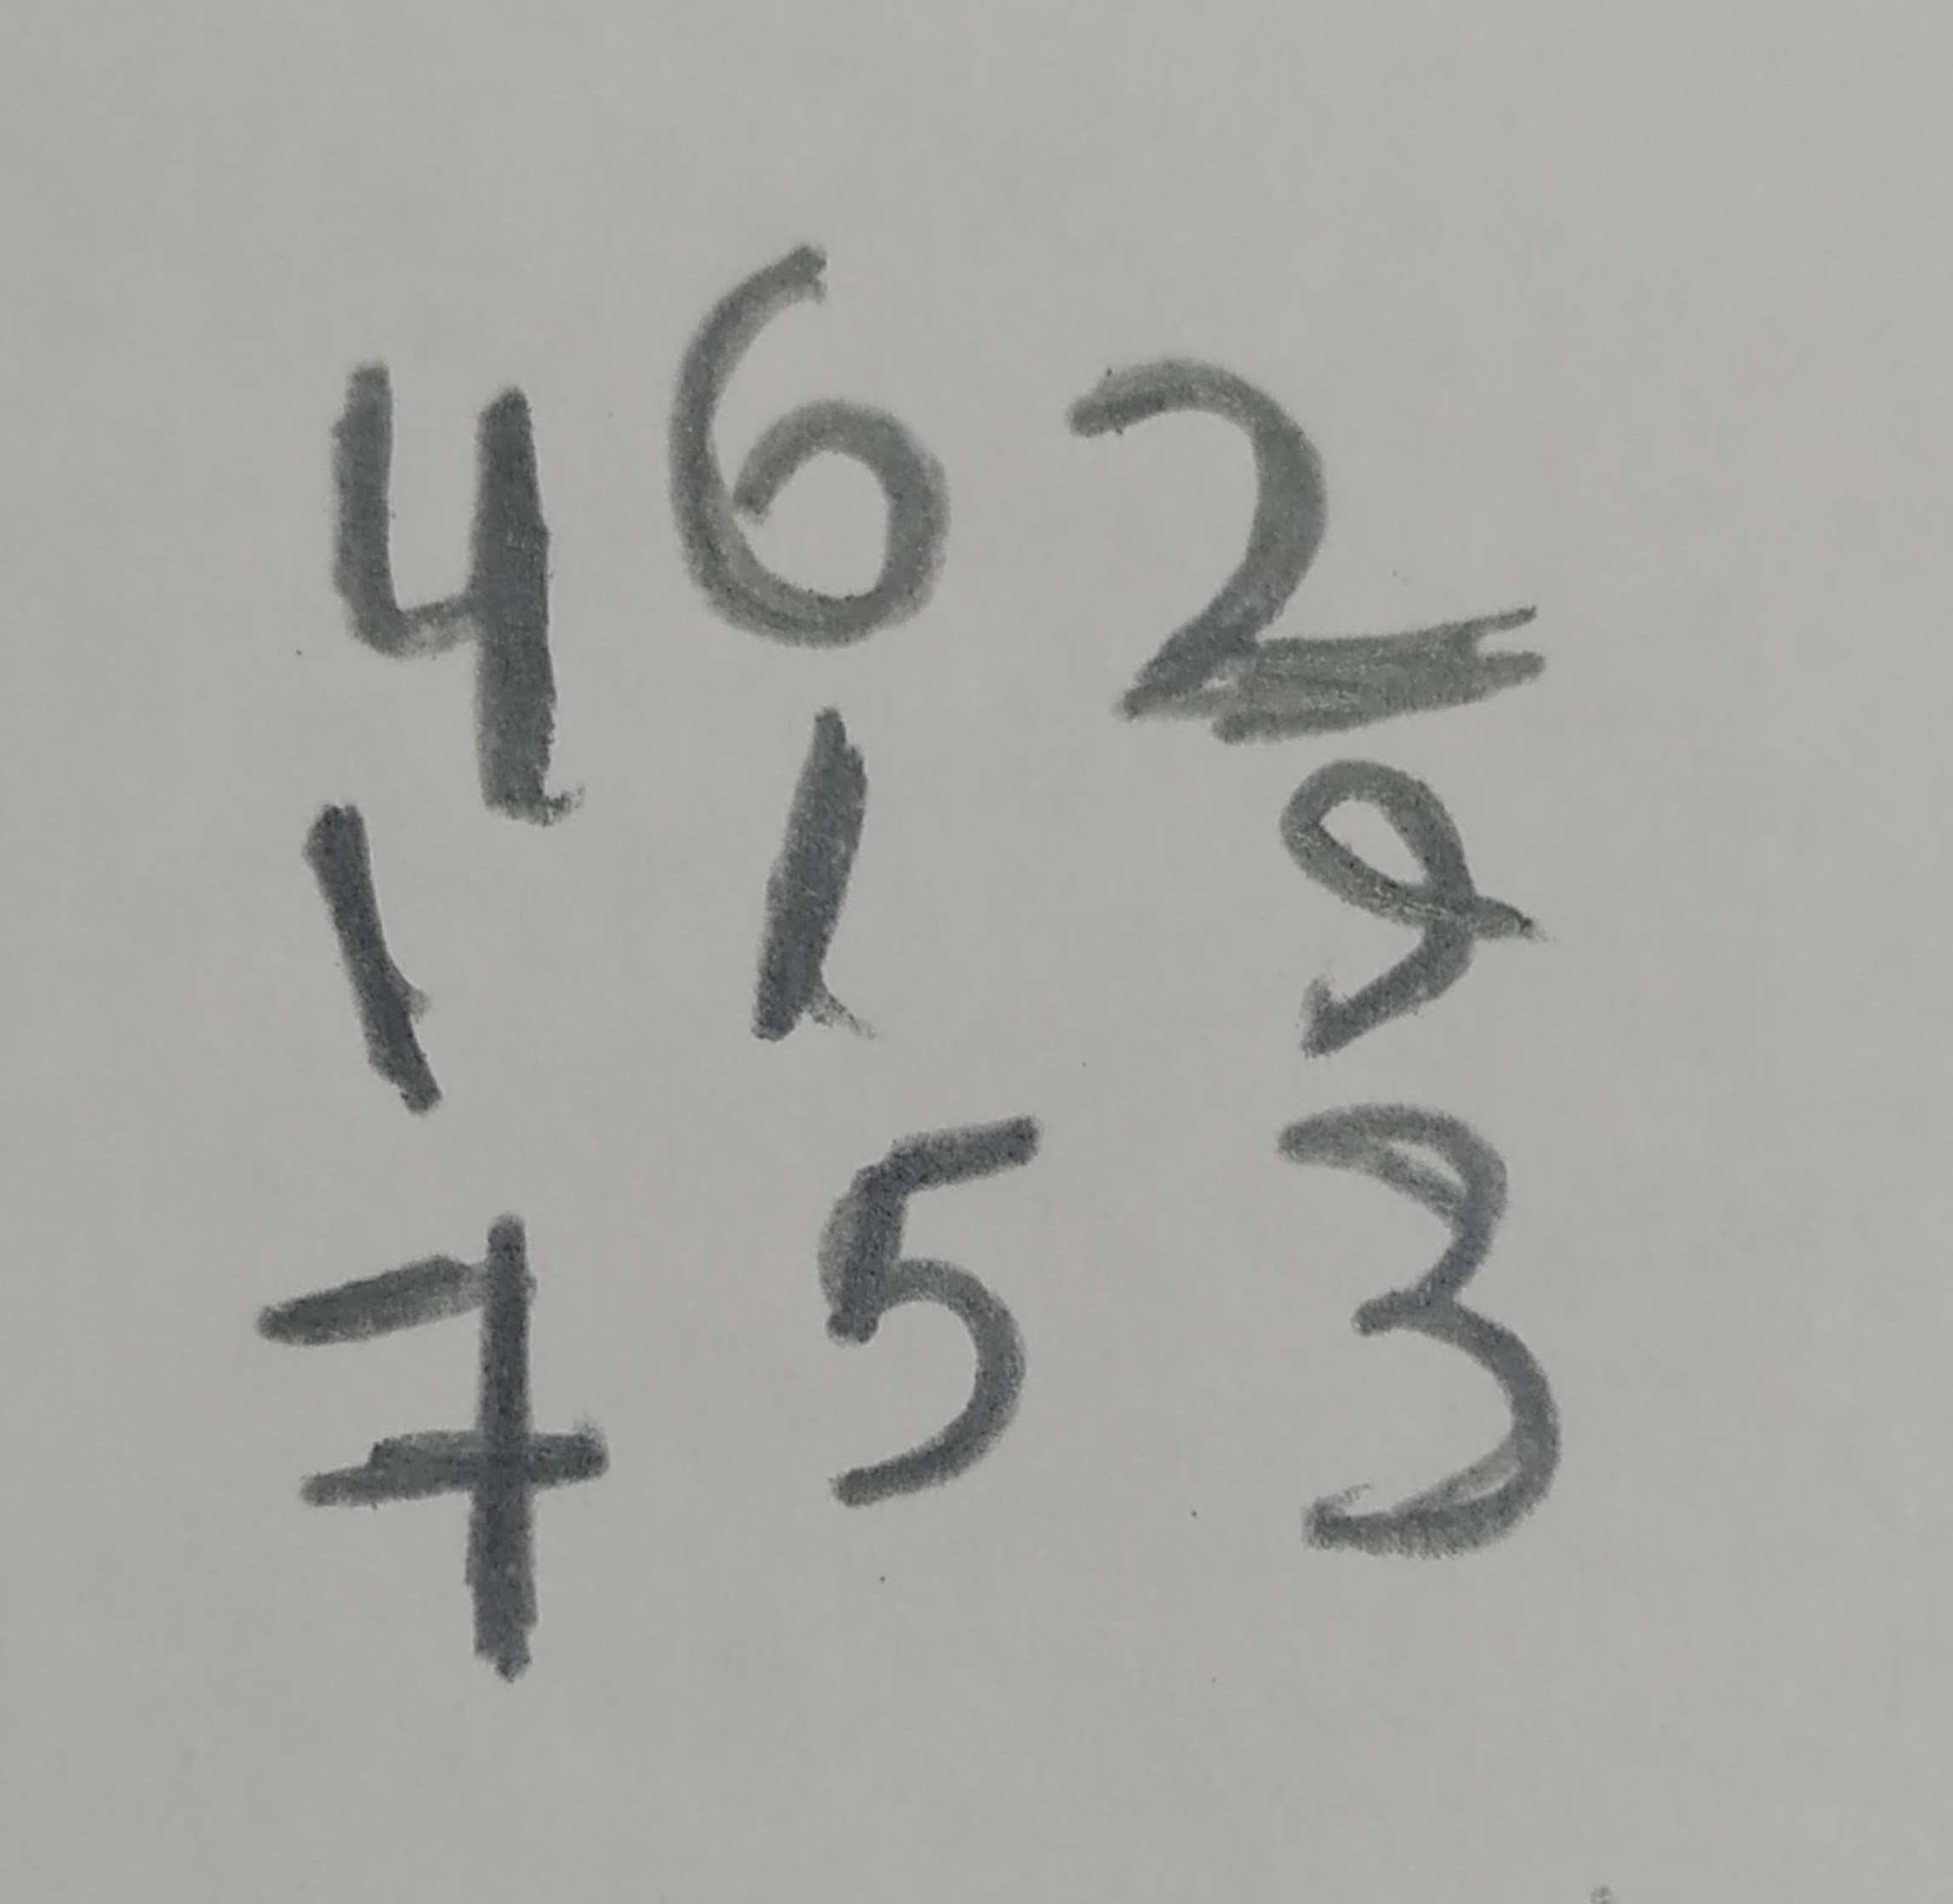 4 6 2
1 1 9
7 5 3